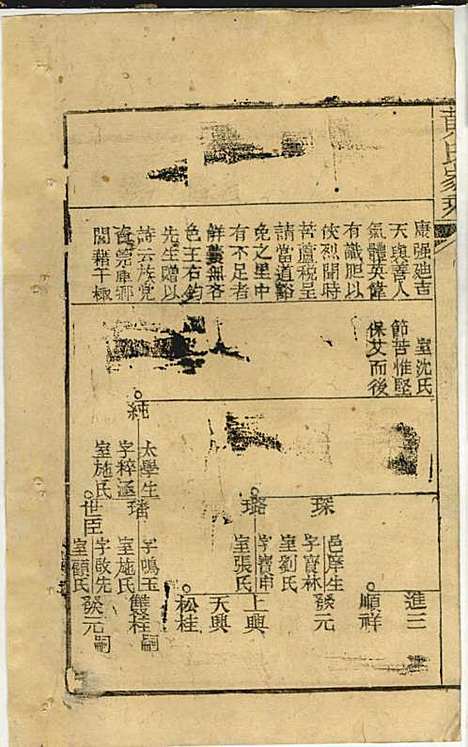 黄氏家乘
康强廸吉
天與善人
氣體英偉
有識胆以
俠烈聞時
菩蘆稅呈
請當道豁
免之里中
有不足者
觧囊無吝
色王石鈞
先生贈以
詩云族党
閱藉干極
室沈氏
節苦惟堅
保艾而後
純
太學生
字粹涵
室施氏
琛
邑庠生
字寳林
室劉氏
璐
字寳甫
室張氏
璠
字鳴玉
室施氏
世臣
字啟先
室顧氏
進三
順祥
發元
上興
天興
松桂
雙桂嗣
發元嗣